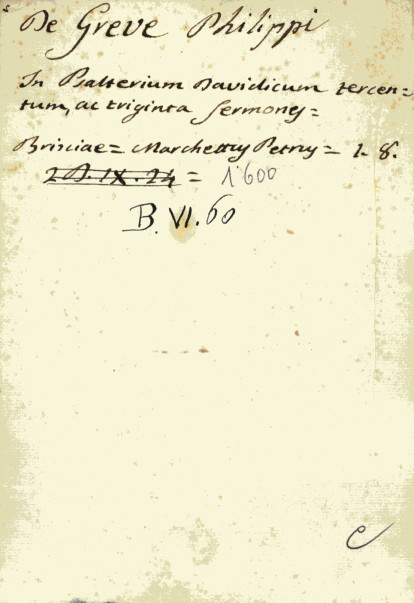 De Greve Philippi
In Psalterium Davidicum tercen=
tum, ac triginta Sermones=
Brisciae= Marchettus Petrus= 1- 8.
2 D. IX. 24 = 1600
B. VI. 60
C